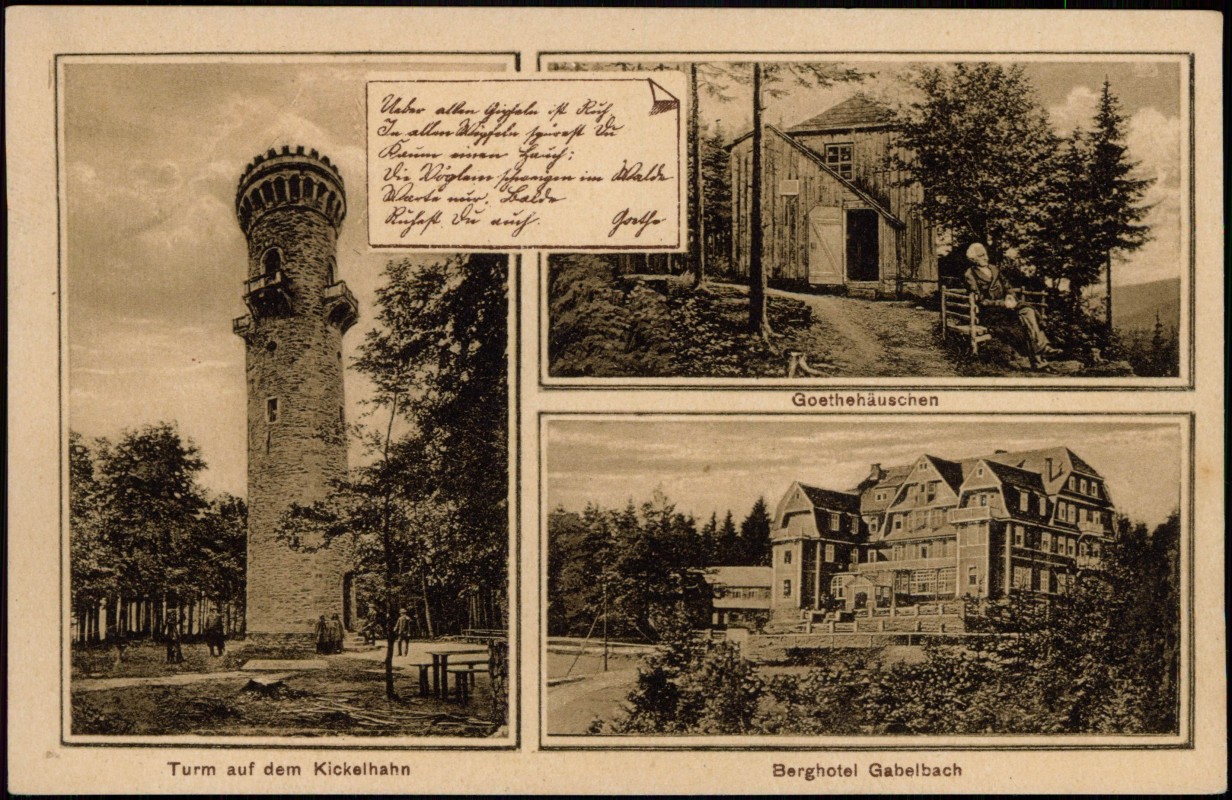 Ueber allen Gipfeln ist Ruh
In allen Wipfeln spürest Du
Kaum einen Hauch;
Die Vöglein schweigen im Walde
Warte nur, Balde
Ruhest Du auch. Goethe
Goethehäuschen
Turm auf dem Kickelhahn
Berghotel Gabelbach